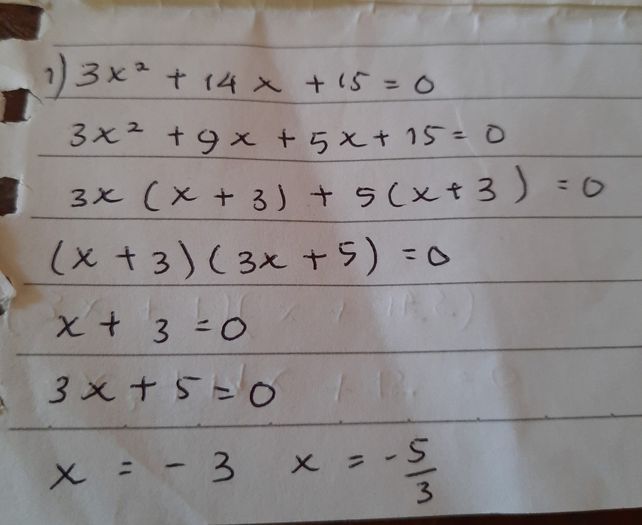 1) 3x² + 14x + 15 = 0
3x² + 9x + 5x + 15 = 0
3x (x + 3) + 5(x + 3) = 0
(x + 3)(3x + 5) = 0
x + 3 = 0
3x + 5 = 0
x = -3 x = -5/3